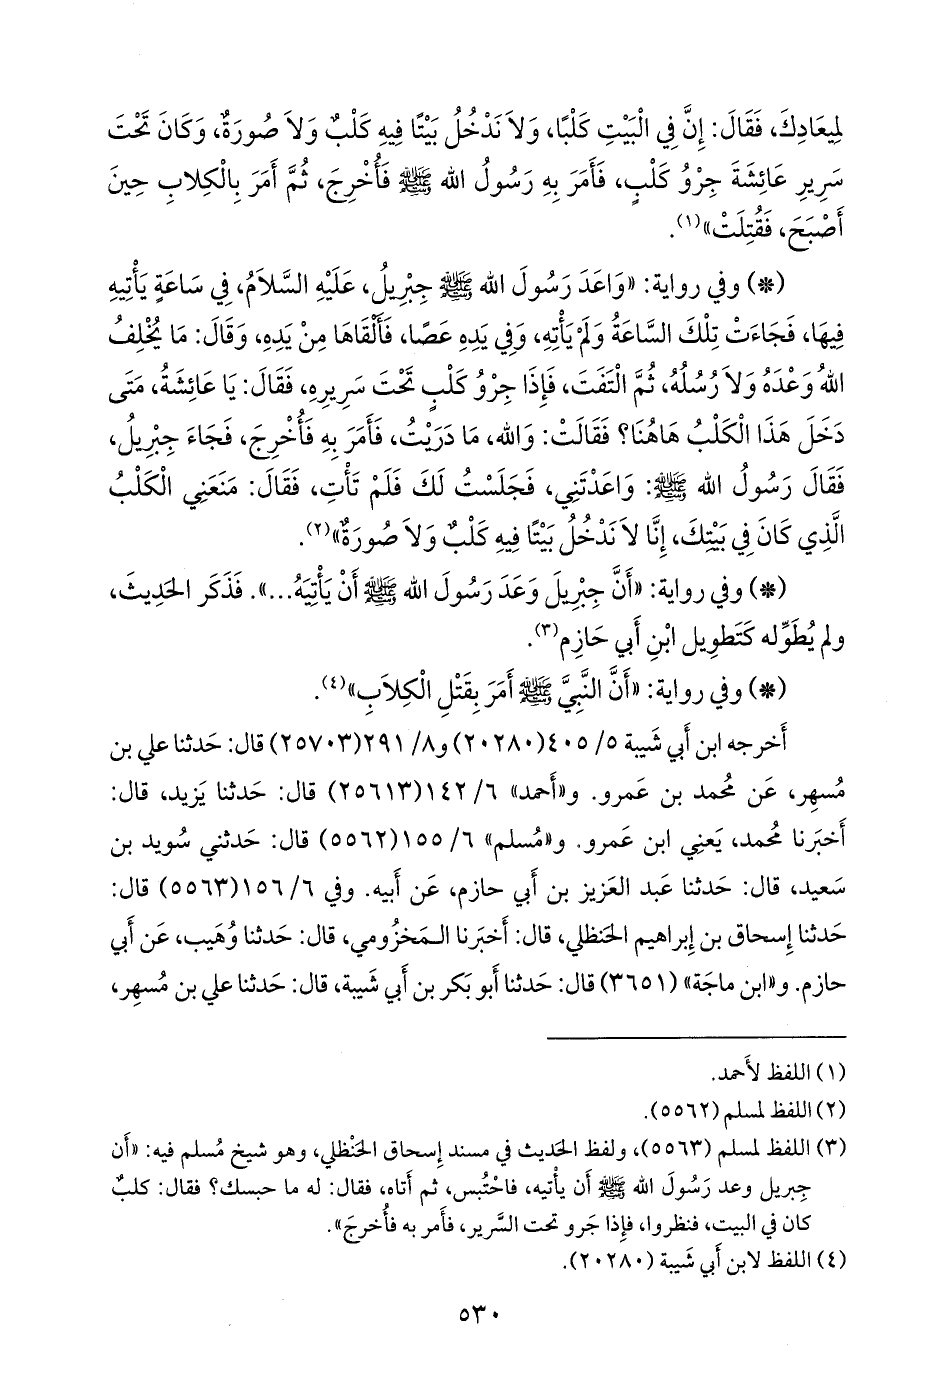 لِمِيعَادِكَ، فَقَالَ: إِنَّ فِي الْبَيْتِ كَلْبًا، وَلاَ نَدْخُلُ بَيْتًا فِيهِ كَلْبٌ وَلاَ صُورَةٌ، وَكَانَ تَحْتَ
سَرِيرِ عَائِشَةَ جِرْوُ كَلْبٍ، فَأَمَرَ بِهِ رَسُولُ الله ﷺ فَأُخْرِجَ، ثُمَّ أَمَرَ بِالْكِلاَبِ حِينَ
أَصْبَحَ، فَقُتِلَتْ»(١).
(*) وفي رواية: «وَاعَدَ رَسُولَ الله ﷺ جِبْرِيلُ، عَلَيْهِ السَّلاَمُ، فِي سَاعَةٍ يَأْتِيهِ
فِيهَا، فَجَاءَتْ تِلْكَ السَّاعَةُ وَلَمْ يَأْتِهِ، وَفِي يَدِهِ عَصًا، فَأَلْقَاهَا مِنْ يَدِهِ، وَقَالَ: مَا يُخْلِفُ
اللهُ وَعْدَهُ وَلاَ رُسُلُهُ، ثُمَّ الْتَفَتَ، فَإِذَا جِرْوُ كَلْبٍ تَحْتَ سَرِيرِهِ، فَقَالَ: يَا عَائِشَةُ، مَتَى
دَخَلَ هَذَا الْكَلْبُ هَاهُنَا؟ فَقَالَتْ: وَالله، مَا دَرَيْتُ، فَأَمَرَ بِهِ فَأُخْرِجَ، فَجَاءَ جِبْرِيلُ،
فَقَالَ رَسُولُ الله ﷺ: وَاعَدْتَنِي، فَجَلَسْتُ لَكَ فَلَمْ تَأْتِ، فَقَالَ: مَنَعَنِي الْكَلْبُ
الَّذِي كَانَ فِي بَيْتِكَ، إِنَّا لاَ نَدْخُلُ بَيْتًا فِيهِ كَلْبٌ وَلاَ صُورَةٌ»(٢).
(*) وفي رواية: «أَنَّ جِبْرِيلَ وَعَدَ رَسُولَ الله ﷺ أَنْ يَأْتِيَهُ...». فَذَكَر الحَدِيثَ،
ولم يُطَوِّله كَتَطويل ابْنِ أَبي حَازِم(٣).
(*) وفي رواية: «أَنَّ النَّبِيَّ ﷺ أَمَرَ بِقَتْلِ الْكِلاَبِ»(٤).
أَخرجه ابن أَبي شَيبة ٥/ ٤٠٥(٢٠٢٨٠) و٨/ ٢٩١(٢٥٧٠٣) قال: حَدثنا علي بن
مُسهِر، عَن مُحمد بن عَمرو. و«أَحمد» ٦/ ١٤٢(٢٥٦١٣) قال: حَدثنا يَزيد، قال:
أَخبَرنا مُحمد، يَعنِي ابن عَمرو. و«مُسلم» ٦/ ١٥٥(٥٥٦٢) قال: حَدثني سُويد بن
سَعيد، قال: حَدثنا عَبد العَزيز بن أَبي حازم، عَن أَبيه. وفي ٦/ ١٥٦(٥٥٦٣) قال:
حَدثنا إِسحاق بن إِبراهيم الحَنظلي، قال: أَخبَرنا المَخزُومي، قال: حَدثنا وُهَيب، عَن أَبي
حازم. و«ابن ماجَة» (٣٦٥١) قال: حَدثنا أَبو بَكر بن أَبي شَيبة، قال: حَدثنا علي بن مُسهِر،
(١) اللفظ لأَحمد.
(٢) اللفظ لمسلم (٥٥٦٢).
(٣) اللفظ لمسلم (٥٥٦٣)، ولفظ الحَديث في مسند إِسحاق الحَنْظلي، وهو شيخ مُسلم فيه: «أَن
جِبريل وعد رَسُولَ الله ﷺ أَن يأْتيه، فاحْتُبس، ثم أَتاه، فقال: له ما حبسك؟ فقال: كلبٌ
كان في البيت، فنظروا، فإِذا جَرو تحت السَّرير، فأَمر به فأُخرجَ».
(٤) اللفظ لابن أَبي شَيبة (٢٠٢٨٠).
٥٣٠